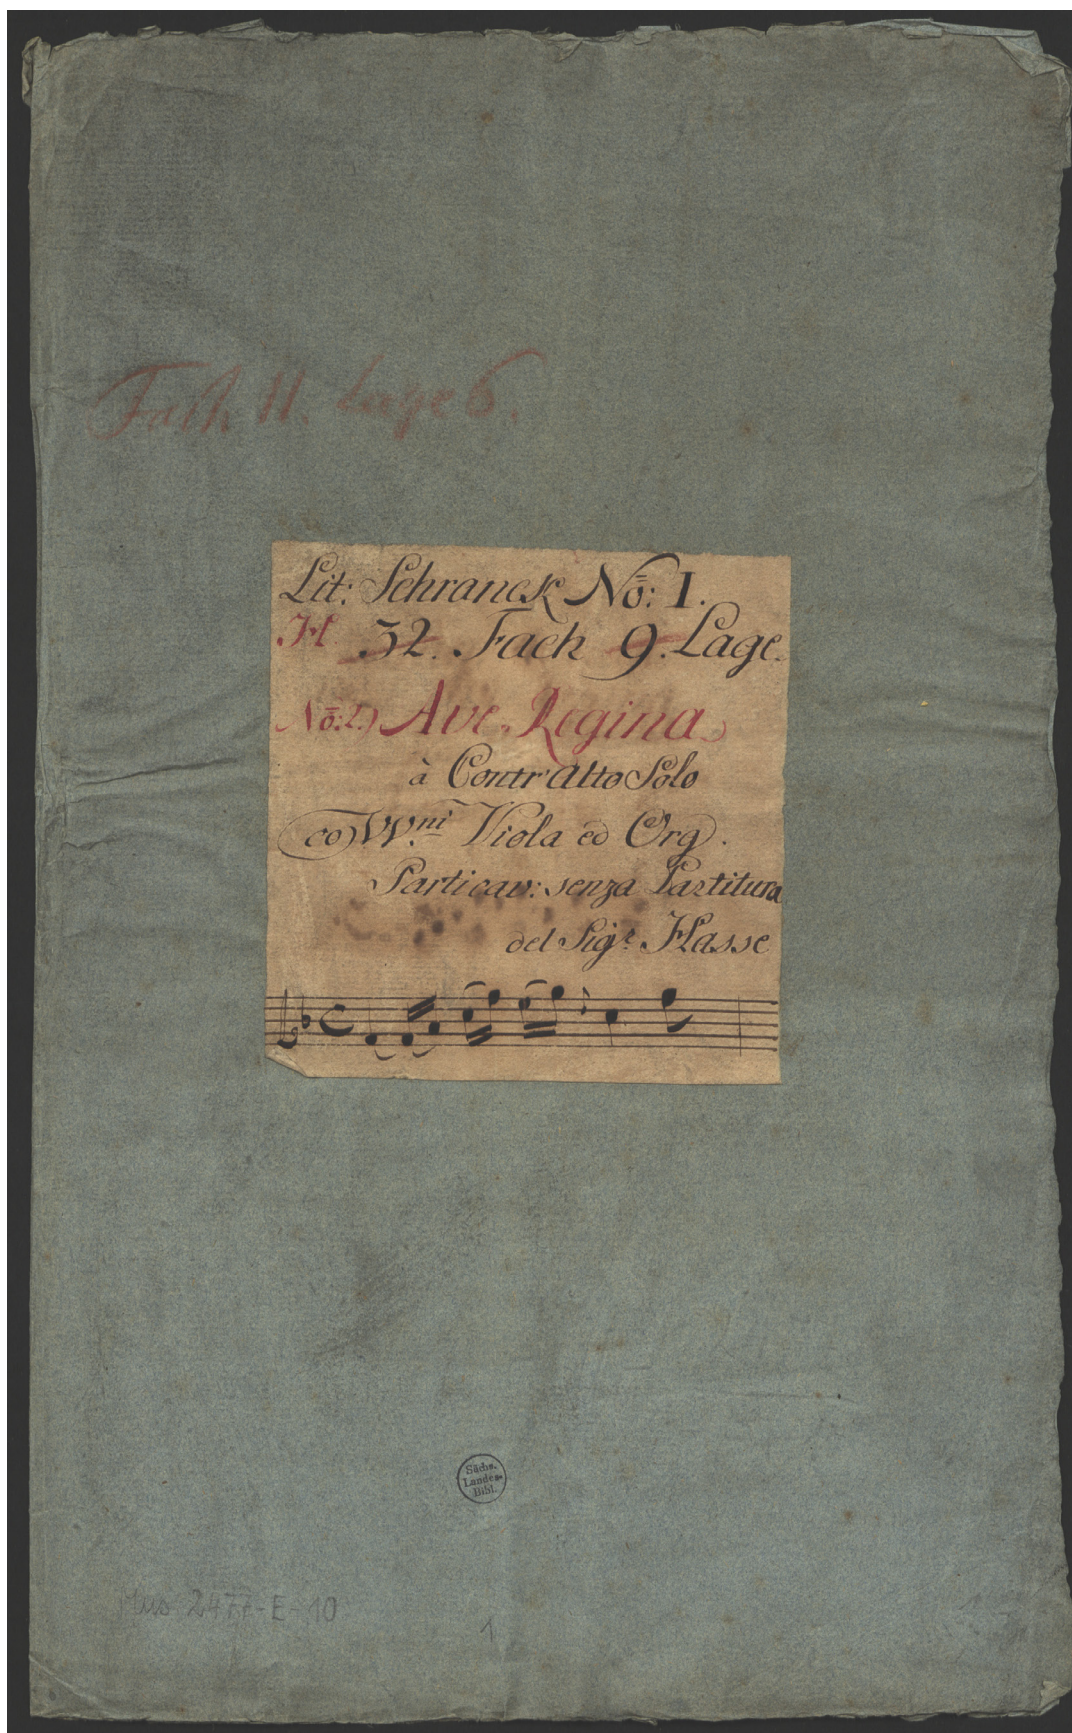 Fach 11. Lage 6.
Lit: Schranck No: I.
H 32. Fach 9. Lage.
No: 2.) Ave Regina
à Contr'alto Solo
co VV.ni Viola ed Org.
Particav: senza Partitura
del Sigr. Hasse
Sächs.
Landes-
Bibl.
Mus. 2477-E-10
1